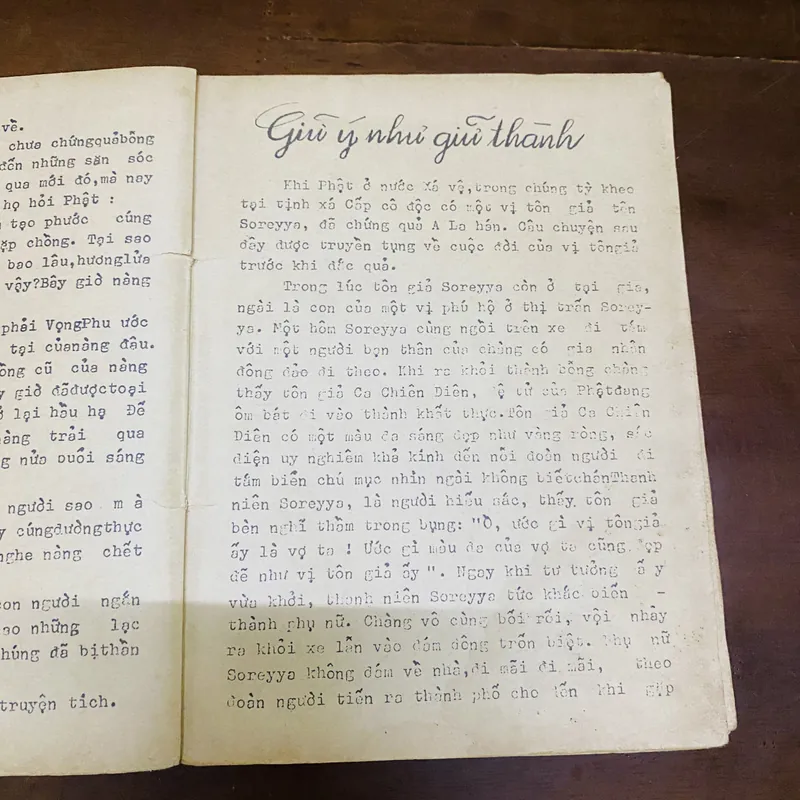 về.
chưa chứngquảbỗng
đến những săn sóc
qua mới đó,mà nay
họ hỏi Phật :
tạo phước cúng
chồng. Tại sao
bao lâu,hươnglửa
vậy?Bây giờ nàng
phải VọngPhu ước
tại củanàng đâu.
cũ của nàng
giờ đãđượctoại
lại hầu hạ Đế
trải qua
nửa Đuổi sáng
người sao m à
cúngdườngthực
nghe nàng chết
con người ngắn
những lạc
chúng đã bịthần
truyện tích.
Giữ ý như giữ thành
Khi Phật ở nước Xá vệ,trong chúng tỳ kheo
tại tịnh xá Cấp cô độc có một vị tôn giả tên
Soreyya, đã chứng quả A La hán. Câu chuyện sau
đây được truyền tụng về cuộc đời của vị tôngiả
trước khi đắc quả.
Trong lúc tôn giả Soreyya còn ở tại gia,
ngài là con của một vị phú hộ ở thị trấn Sorey-
ya. Một hôm Soreyya cùng ngồi trên xe đi tắm
với một người bạn thân của chàng có gia nhân
đông đảo đi theo. Khi ra khỏi thành bỗng chàng
thấy tôn giả Ca Chiên Diên, đệ tử của Phậtđang
ôm bát đi vào thành khất thực.Tôn giả Ca Chiên
Diên có một màu da sáng đẹp như vàng ròng, sắc
diện uy nghiêm khả kính đến nỗi đoàn người đi
tắm biển chú mục nhìn ngài không biếtchánThanh
niên Soreyya, là người hiếu sắc, thấy tôn giả
bèn nghĩ thầm trong bụng: "Ồ, ước gì vị tôngiả
ấy là vợ ta ! Ước gì màu da của vợ ta cũng đẹp
đẽ như vị tôn giả ấy ". Ngay khi tư tưởng ấ y
vừa khởi, thanh niên Soreyya tức khắc biến -
thành phụ nữ. Chàng vô cùng bối rối, vội nhảy
ra khỏi xe lẫn vào đám đông trốn biệt. Phụ nữ
Soreyya không dám về nhà,đi mãi đi mãi, theo
đoàn người tiến ra thành phố cho đến khi gặp